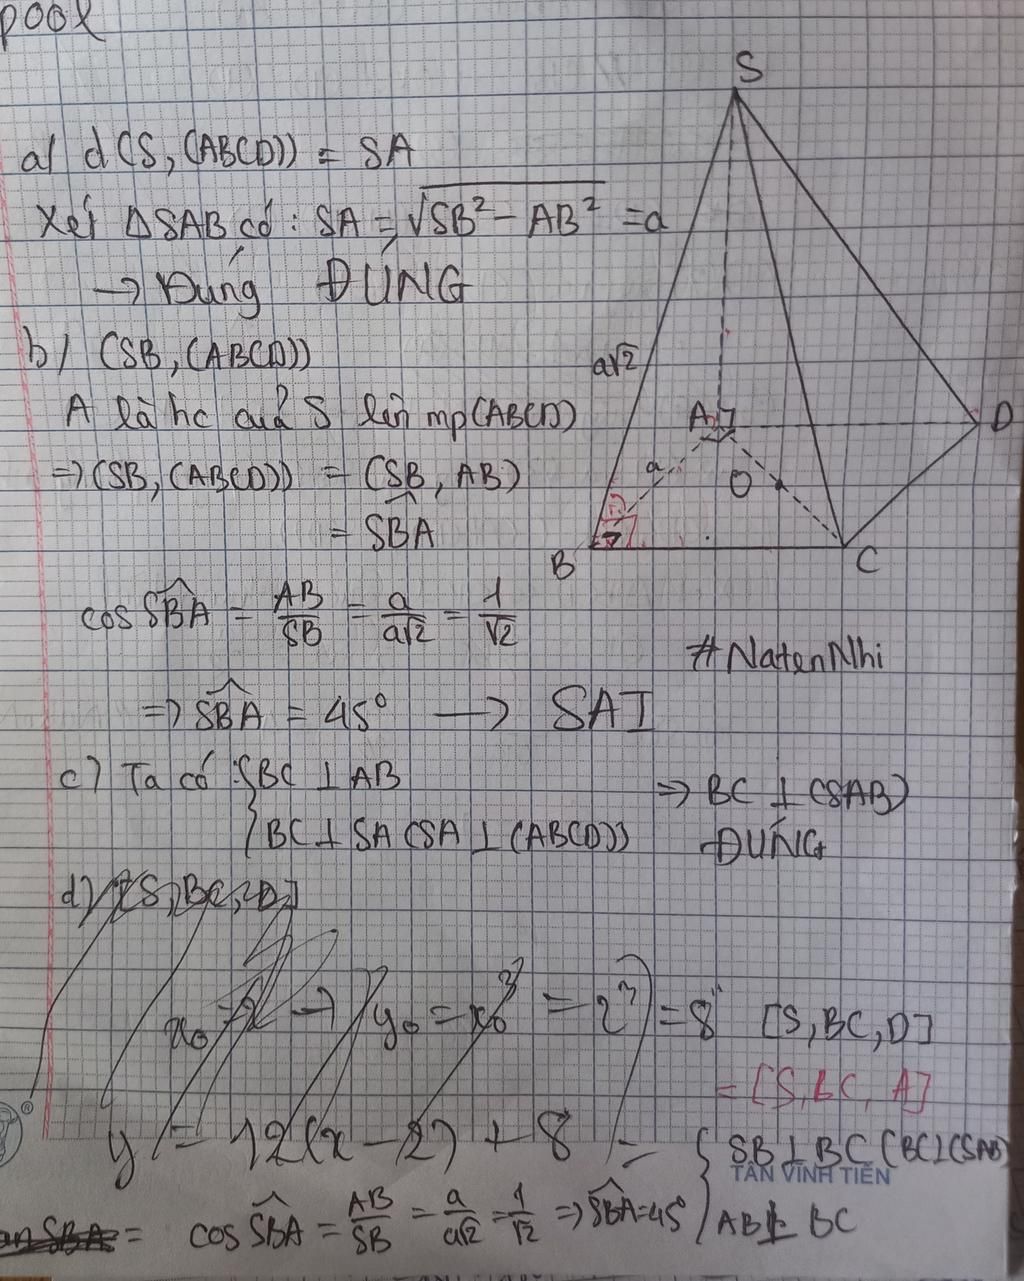 pool
a/ d(S, (ABCD)) = SA
Xét ΔSAB có: SA = √SB² - AB² = a
→ Đúng ĐÚNG
b/ (SB, (ABCD))
A là hc của S lên mp(ABCD)
=> (SB, (ABCD)) = (SB, AB)
= SBA
cos SBA = AB/SB = a/a√2 = 1/√2
=> SBA = 45° → SAI
c) Ta có { BC ⊥ AB
BC ⊥ SA (SA ⊥ (ABCD))
=> BC ⊥ (SAB)
ĐÚNG
d) [S, BC, D]
x₀ = 2 → y₀ = x₀³ = 2³ = 8
y = 12(x - 2) + 8
[S, BC, D]
= [S, BC, A]
{ SB ⊥ BC (BC ⊥ (SAB)
AB ⊥ BC
cos SBA = AB/SB = a/a√2 = 1/√2 => SBA = 45°
S
a√2
A
D
a
O
B
C
#NatenNhi
TÂN VĨNH TIẾN
®